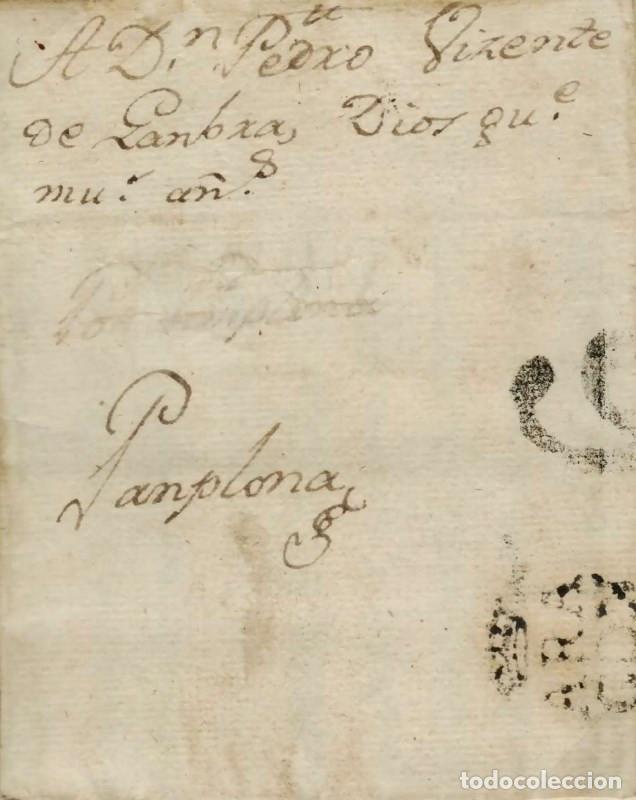 A D.n Pedro Vizente
de Ganbra, Dios gu.e
mu.s añ.s
Panplona
ARA
todocoleccion